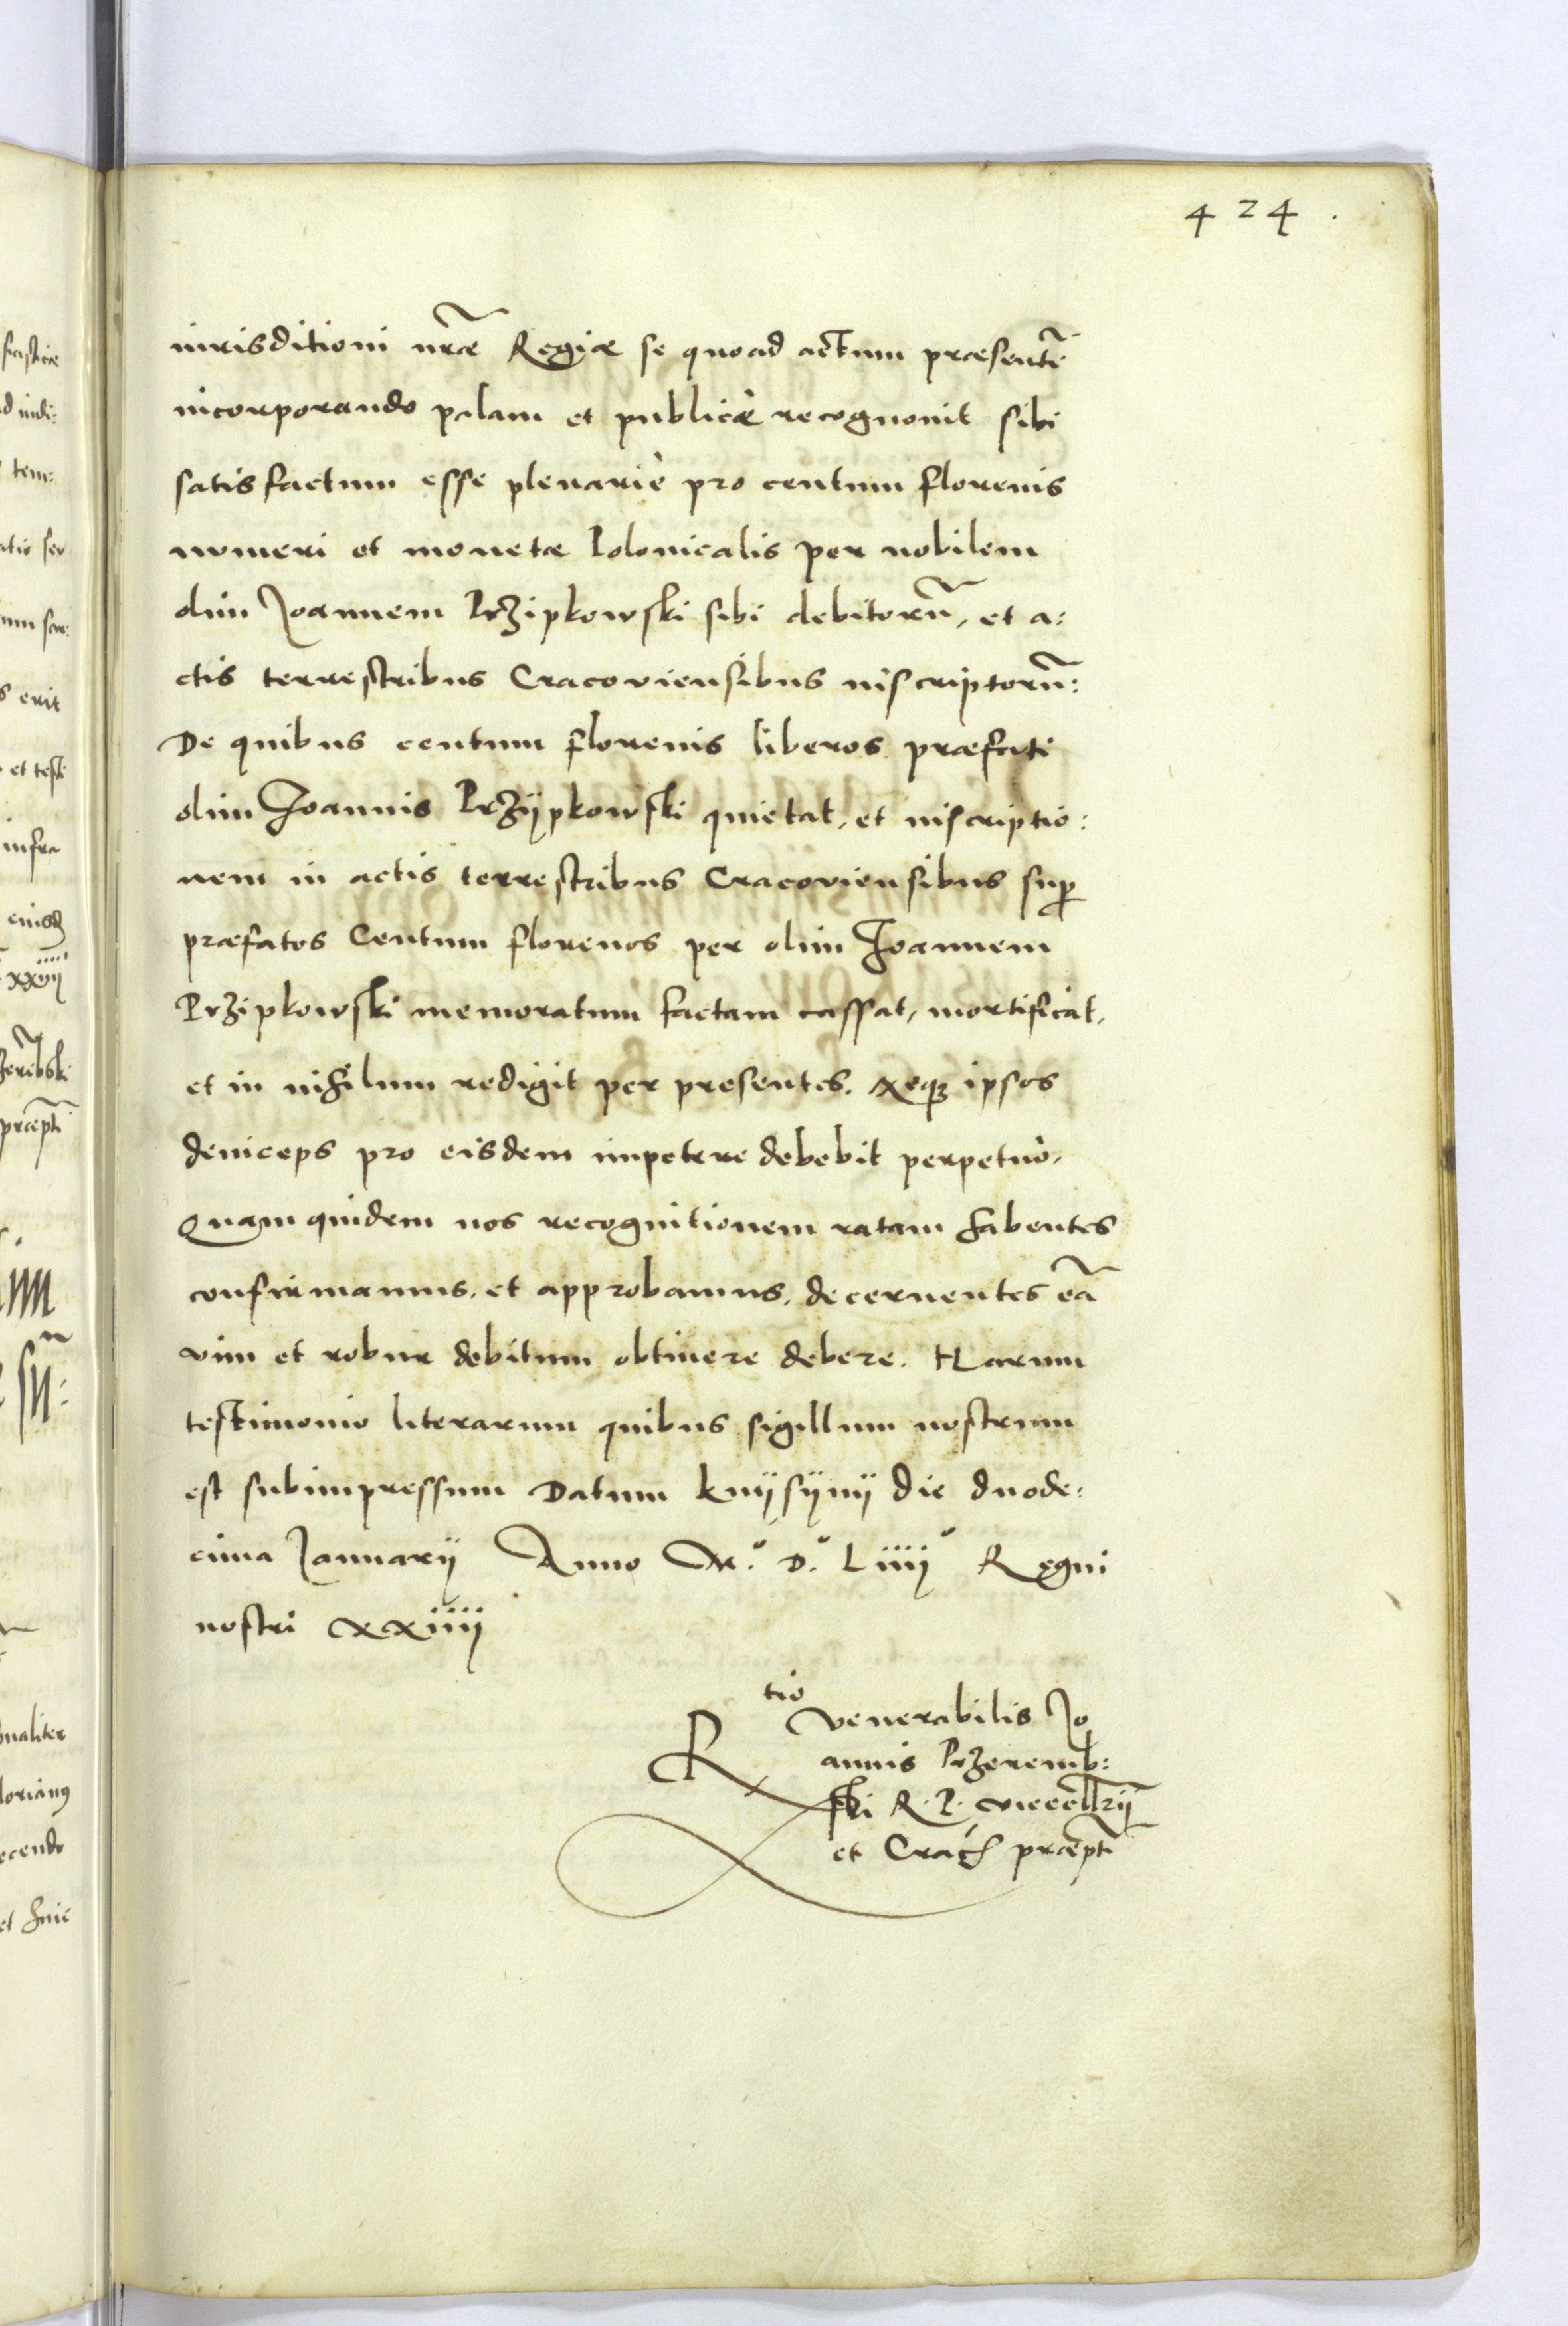 424.
iurisditioni nr̃ae Regiae se quoad actum praesentẽ
incorporando palam et publicè recognouit sibi
satisfactum esse plenariè pro centum florenis
numeri et monetae Polonicalis per nobilem
olim Joannem Przipkowski sibi debitorũ, et a:
ctis terrestribus Cracoviensibus inscriptorũ:
De quibus centum florenis liberos praefati
olim Joannis Przÿpkowski quietat, et inscriptio:
nem in actis terrestribus Cracoviensibus sup
praefatos Centum florenos per olim Joannem
Przipkowski memoratum factam cassat, mortificat,
et in nihilum redigit per presentes. Neque ipsos
deniceps pro eisdem impetere debebit perpetuò,
Quam quidem nos recognitionem ratam habentes
confirmamus, et approbamus, decernentes eã
vim et robur debitum obtinere debere. Harum
testimonio literarum quibus sigillum nostrum
est subimpressum Datum Knÿsÿnÿ die duode:
cima Januarÿ Anno M.° D.° Liiij° Regni
nostri xxiiij
Rtio venerabilis Jo
annis Przeremb:
ski R. P. vicecellrÿ
et Crach praepti
fasticae
d iudi:
tem:
atio seu
s erit
et testi
infra
eiusd
xxiiij
zerẽbski
praepti
lorianus
ecendo
et huic